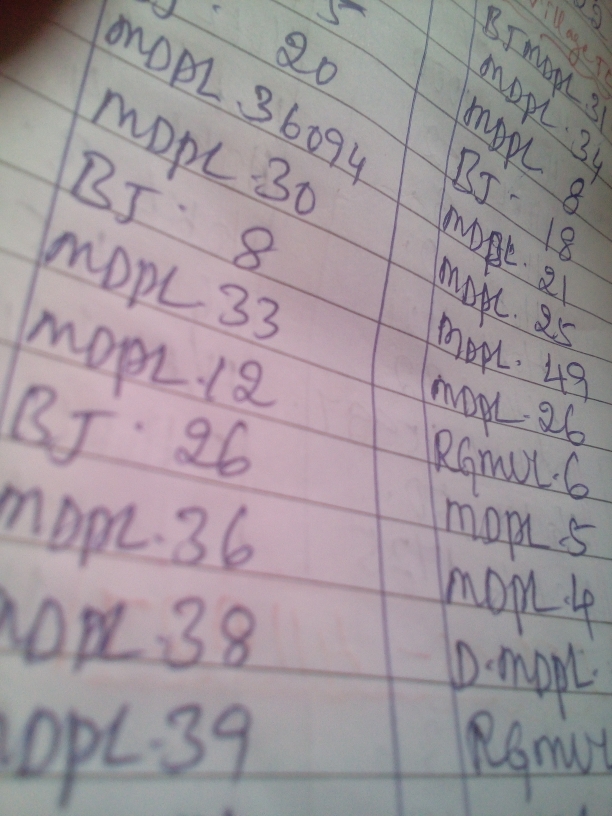 BJ. 5
20
MDPL 36094
MDPL 30
BJ. 8
MDPL 33
MDPL.12
BJ. 26
MDPL.36
MDPL.38
MDPL.39
Village
BJ MDPL.31
MDPL.34
MDPL 8
BJ. 18
MDPL. 21
MDPL. 25
MDPL. 49
MDPL.26
RGMVL.6
MDPL.5
MDPL.4
D.MDPL.
RGMVL